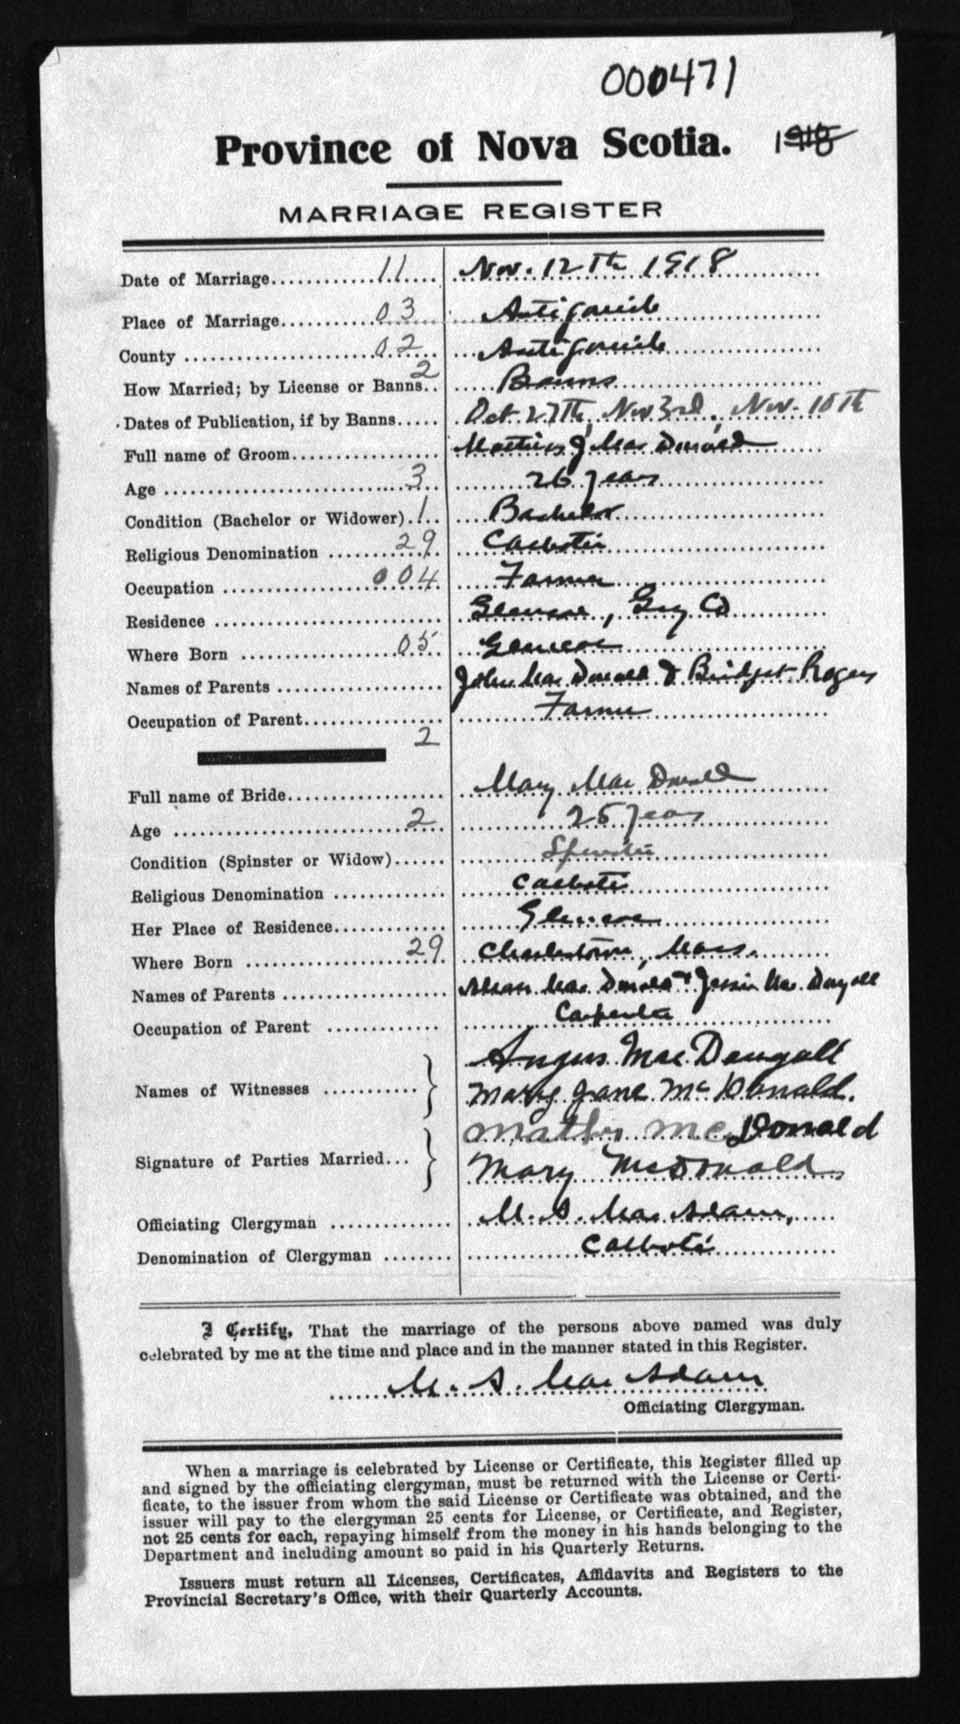 000471
Province of Nova Scotia. 1918
MARRIAGE REGISTER
Date of Marriage 11 Nov. 12Th 1918
Place of Marriage 03 Antigonish
County 02 Antigonish
How Married; by License or Banns 2 Banns
Dates of Publication, if by Banns Oct 27Th, Nov 3rd, Nov. 10Th
Full name of Groom J Mac Donald
Age 3 26 years
Condition (Bachelor or Widower) 1 Bachelor
Religious Denomination 29 Catholic
Occupation 004 Farmer
Residence Glencoe, Guy Co
Where Born 05 Glencoe
Names of Parents John Mac Donald & Bridget Rogers
Occupation of Parent Farmer
2
Full name of Bride Mary Mac Donald
Age 2 25 years
Condition (Spinster or Widow) Spinster
Religious Denomination Catholic
Her Place of Residence Glencoe
Where Born 29 Charlestown, Mass.
Names of Parents Mac Donald & Jessie Mac Dougall
Occupation of Parent Carpenter
Names of Witnesses } Angus Mac Dougall
Mary Jane Mc Donald.
Signature of Parties Married... } McDonald
Mary McDonald
Officiating Clergyman M. A. Mac Adam,
Denomination of Clergyman Catholic
I Certify, That the marriage of the persons above named was duly
celebrated by me at the time and place and in the manner stated in this Register.
M. A. Mac Adam
Officiating Clergyman.
When a marriage is celebrated by License or Certificate, this Register filled up
and signed by the officiating clergyman, must be returned with the License or Certi-
ficate, to the issuer from whom the said License or Certificate was obtained, and the
issuer will pay to the clergyman 25 cents for License, or Certificate, and Register,
not 25 cents for each, repaying himself from the money in his hands belonging to the
Department and including amount so paid in his Quarterly Returns.
Issuers must return all Licenses, Certificates, Affidavits and Registers to the
Provincial Secretary's Office, with their Quarterly Accounts.